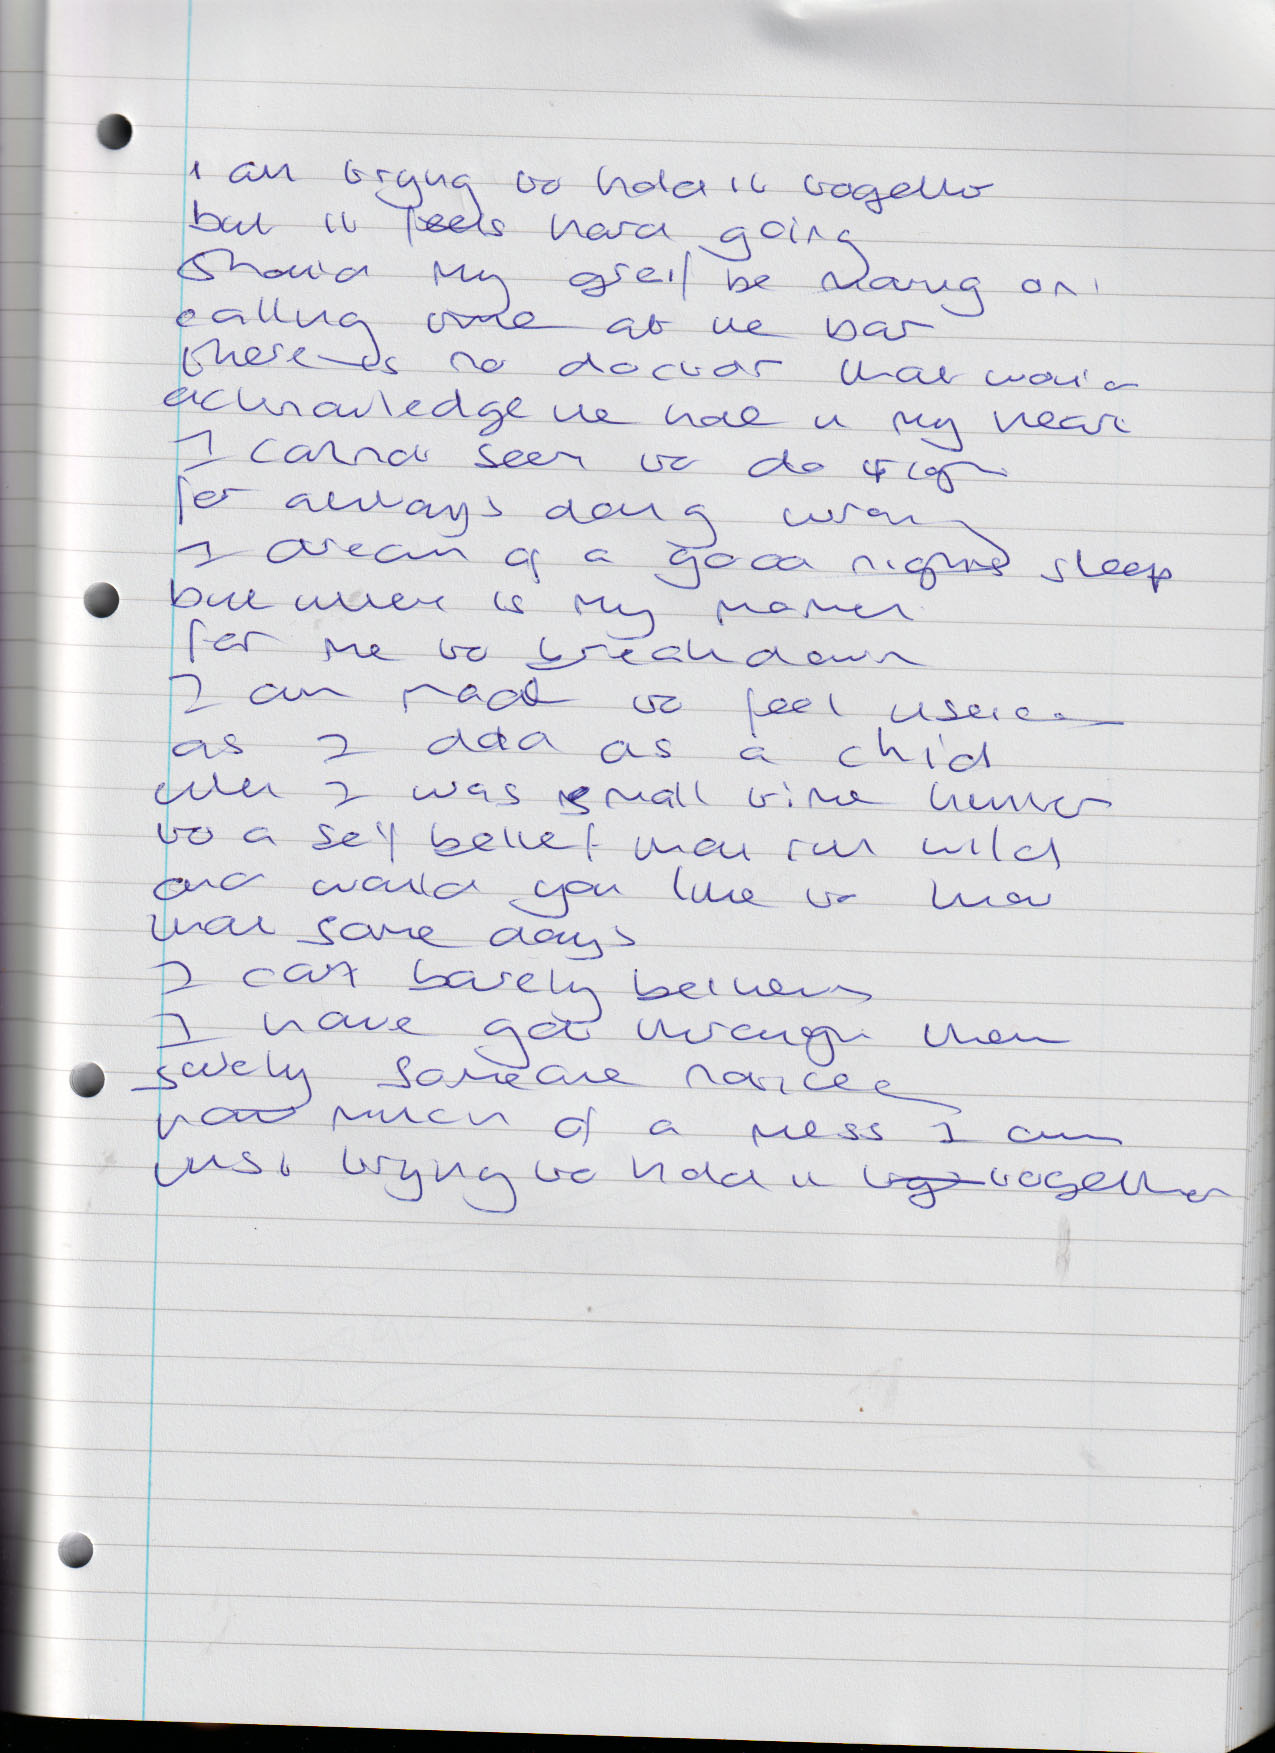 I am trying to hold it together
but it feels hard going
Should my greif be moving on
calling time at the bar
there is no doctor that would
acknowledge the hole in my heart
I cannot seem to do right
for always doing wrong
I dream of a good nights sleep
but when is my moment
for me to breakdown
I am made to feel useless
as I did as a child
when I was small time
to a self belief that run wild
and would you like to know
that some days
I can barely believe
I have got through them
surely someone notices
how much of a mess I am
just trying to hold it together